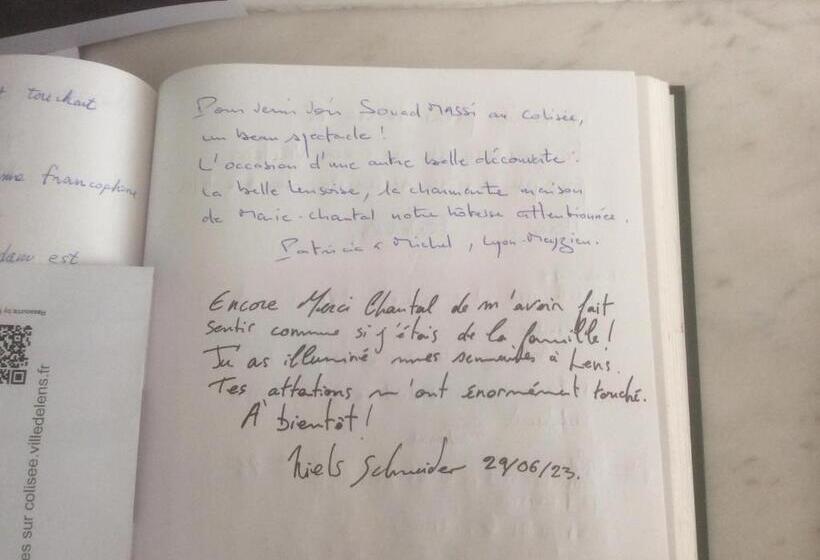 touchant
francophone
est
Pour venir voir Souad MASSI au colisée,
un beau spectacle !
L'occasion d'une autre belle découverte :
La belle Lensoise, la charmante maison
de Marie-Chantal notre hôtesse attentionnée.
Patricia & Michel, Lyon-Meyzieu.
Encore Merci Chantal de m'avoir fait
sentir comme si j'étais de la famille !
Tu as illuminé mes semaines à Lens.
Tes attentions m'ont énormément touché.
À bientôt !
Niels Schneider 29/06/23.
es sur colisee.villedelens.fr